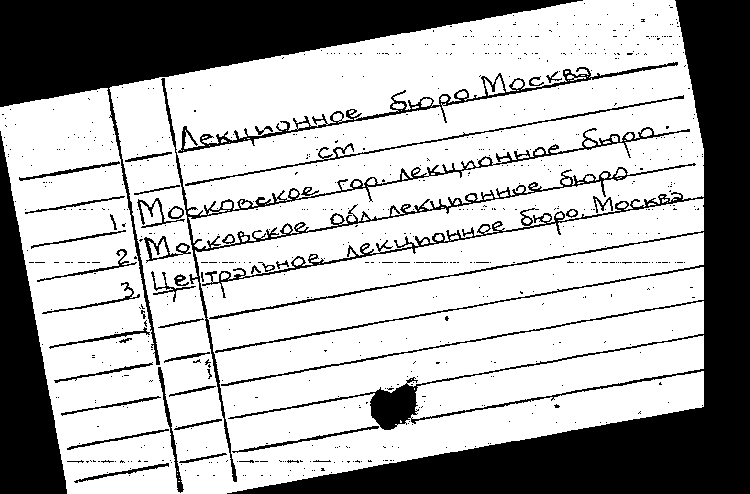 Лекционное бюро. Москва.
см.
1. Московское гор. лекционное бюро.
2. Московское обл. лекционное бюро.
3. Центральное лекционное бюро. Москва